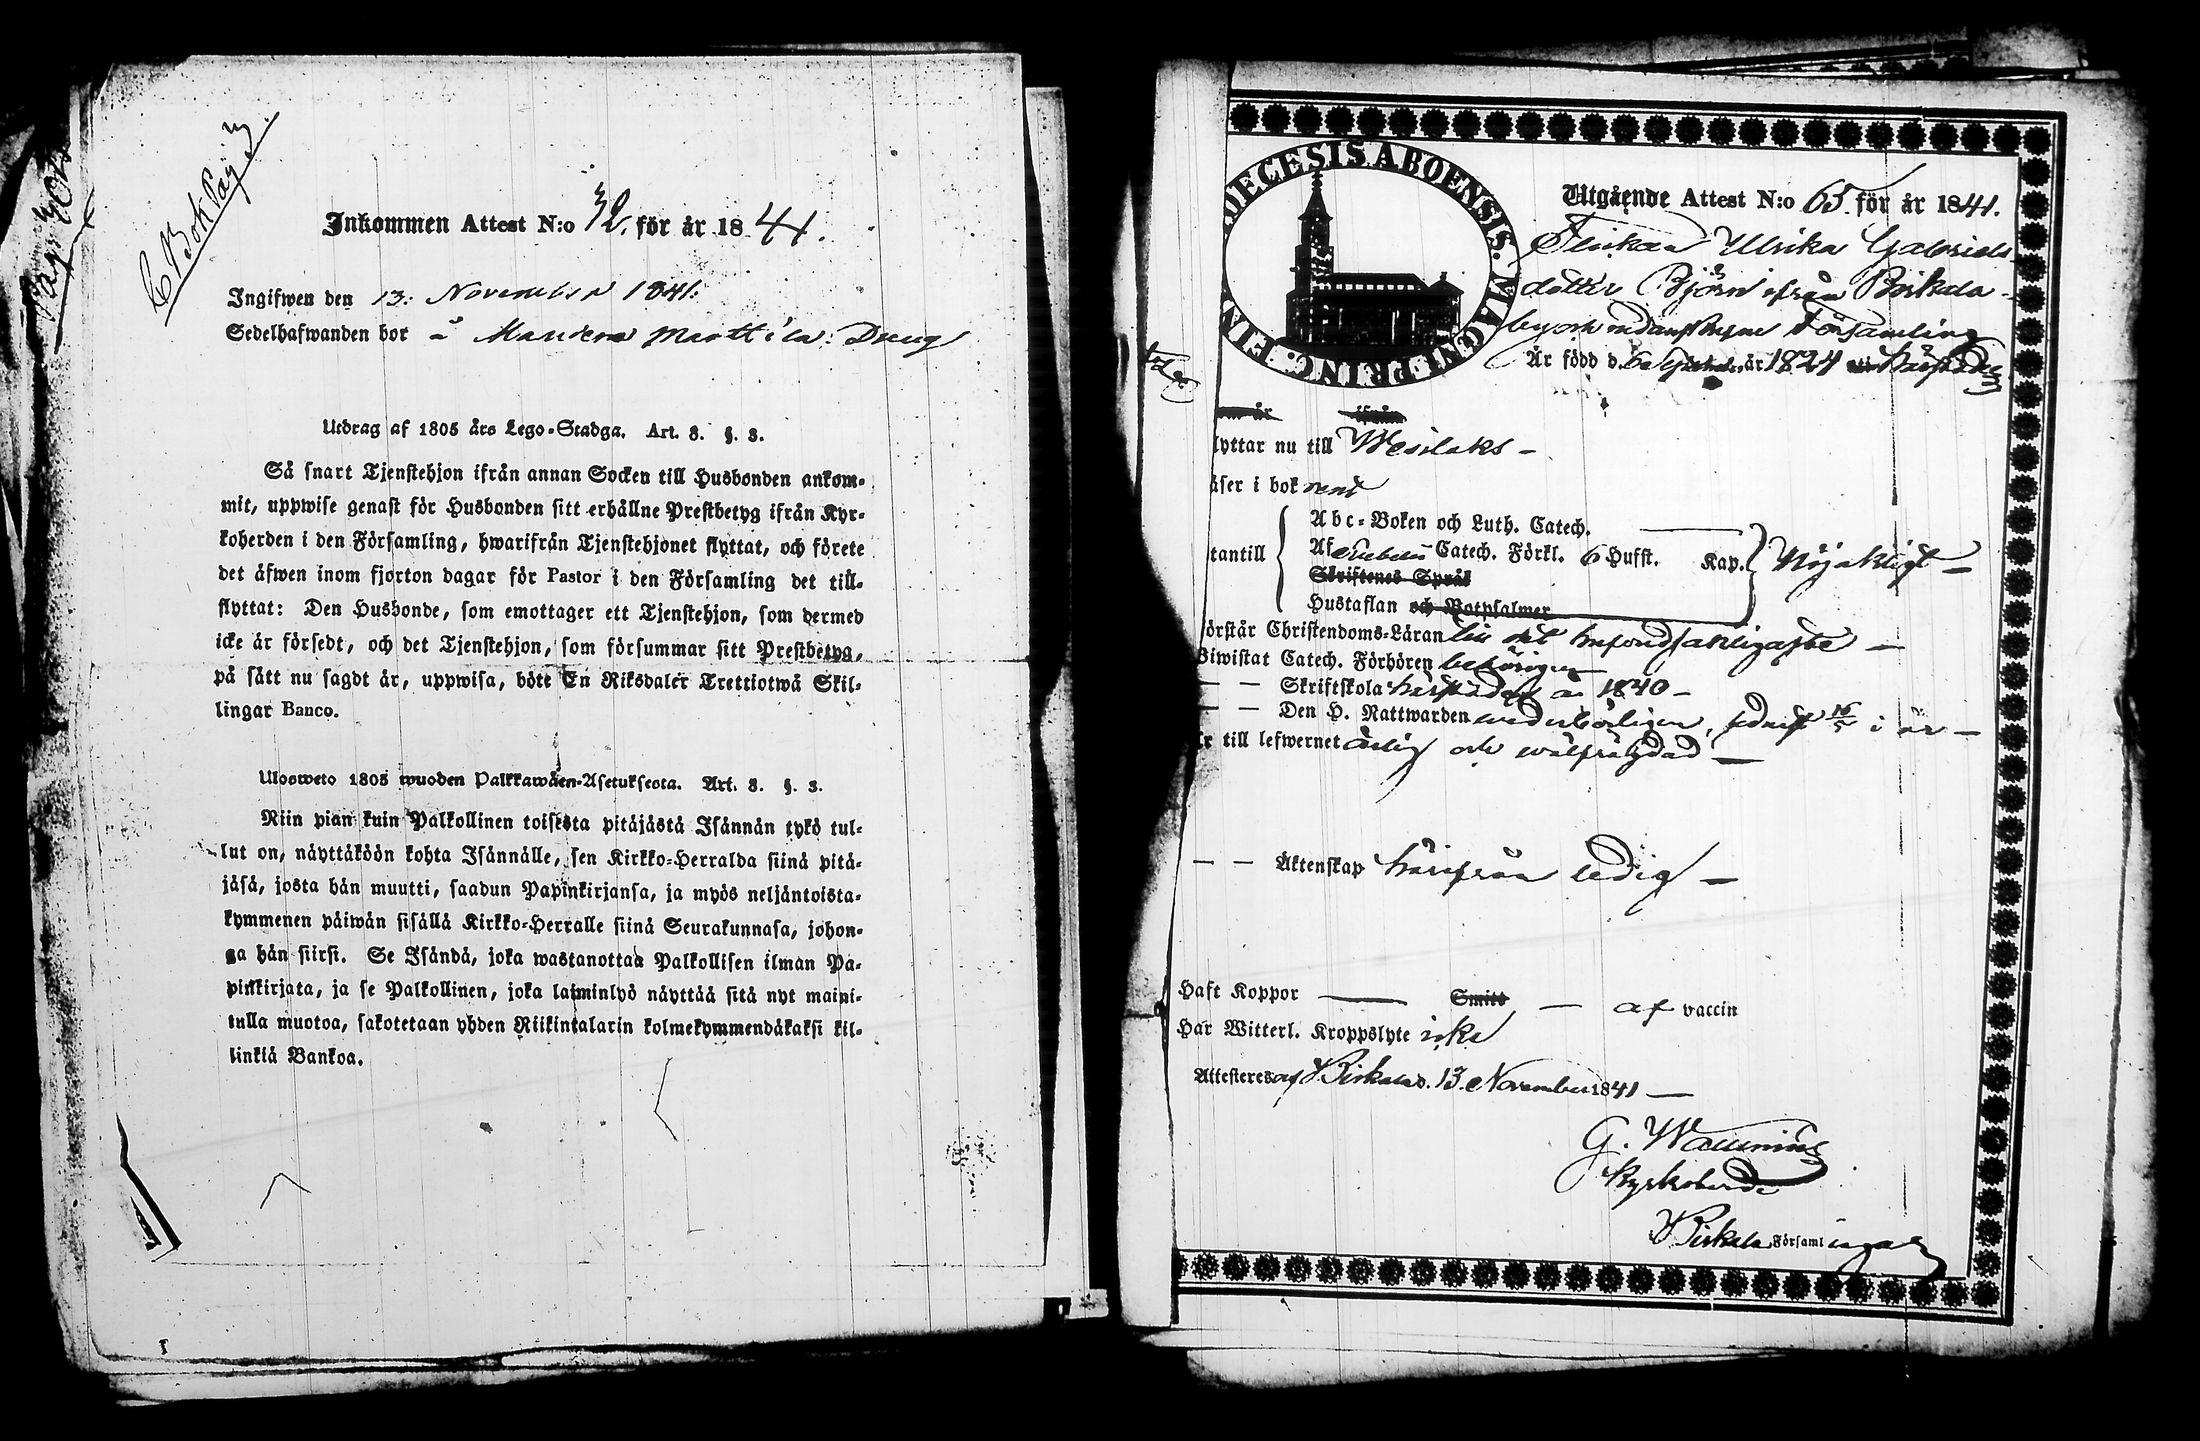 C Bok Pag
Inkommen Attest N:o 32. för år 1841.
Ingifwen den 13: November 1841:
Sedelhafwanden bor å Manders Marttila: Dreng
Utdrag af 1805 års Lego-Stadga. Art. 3. §. 3.
Så snart Tjenstehjon ifrån annan Socken till Husbonden ankom-
mit, uppwise genast för Husbonden sitt erhållne Prestbetyg ifrån Kyr-
koherden i den Församling, hwarifrån Tjenstehjonet flyttat, och förete
det äfwen inom fjorton dagar för Pastor i den Församling det till-
flyttat: Den Husbonde, som emottager ett Tjenstehjon, som dermed
icke är försedt, och det Tjenstehjon, som försummar sitt Prestbetyg,
på sätt nu sagdt är, uppwisa, böte En Riksdaler Trettiotwå Skil-
lingar Banco.
Ulosweto 1805 wuoden Palkkawäen-Asetuksesta. Art. 3. §. 3.
Niin pian kuin Palkollinen toisesta pitäjästä Isännän tykö tul-
lut on, näyttäköön kohta Isännälle, sen Kirkko-Herralda siinä pitä-
jäsä, josta hän muutti, saadun Papinkirjansa, ja myös neljäntoista-
kymmenen päiwän sisällä Kirkko-Herralle siinä Seurakunnasa, johon-
ga hän siirsi. Se Isändä, joka wastanottaa Palkollisen ilman Pa-
pinkirjata, ja se Palkollinen, joka laiminlyö näyttää sitä nyt maini-
tulla muotoa, sakotetaan yhden Riikintalarin kolmekymmendäkaksi kil-
linkiä Bankoa.
DIOECESIS ABOENSIS. MAGNI PRINC. FIN
Utgående Attest N:o 65 för år 1841.
Flickan Ulrika Gabriels
dotter Björn ifrån Birkala
by och nedanskrefne Församling
Är född d. 6 September år 1824 härstädes
om år ifrån
lyttar nu till Wesilaks –
äser i bok rent
Abc-Boken och Luth. Catech.
tantill Af Svebelii Catech. Förkl. 6 Hufst. Kap. Nöjaktigt –
Skriftenes Språk
Hustaflan och Botpsalmer
örstår Christendoms-Läran till det hufvudsakligaste –
Biwistat Catech. Förhören behörigen
— — Skriftskola härstädes år 1840 –
— — Den H. Nattwarden wederbörligen, sednast 16/5 i år –
r till lefwernet ärlig och wälfräjdad –
— — Äktenskap härifrån ledig –
Haft Koppor — Smitt — af vaccin
Har Witterl. Kroppslyte icke
Attesteres af Birkala d. 13. November 1841 —
G. Wallenius
Kyrkoherde
Birkala Församlingar